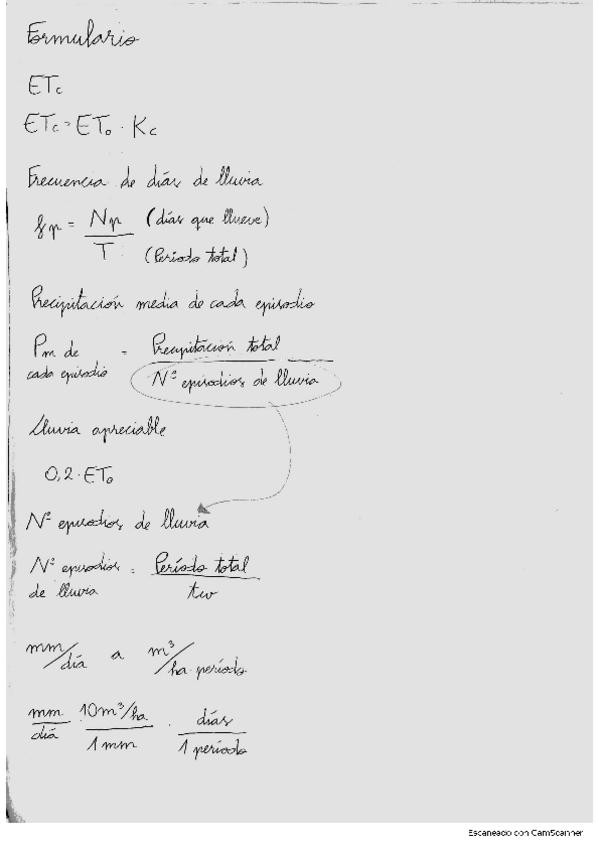 Formulario
ETc
ETc = ETo · Kc
Frecuencia de días de lluvia
fp = Np / T (días que llueve) (Período total)
Precipitación media de cada episodio
Pm de cada episodio = Precipitación total / Nº episodios de lluvia
Lluvia apreciable
0,2 · ETo
Nº episodios de lluvia
Nº episodios de lluvia = Período total / tw
mm/día a m³/ha·período
mm/día · 10m³/ha / 1 mm · días / 1 período
Escaneado con CamScanner